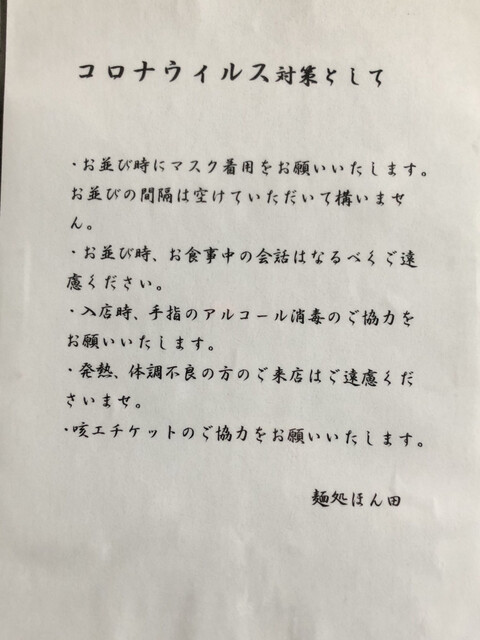 コロナウィルス対策として
・お並び時にマスク着用をお願いいたします。
お並びの間隔は空けていただいて構いませ
ん。
・お並び時、お食事中の会話はなるべくご遠
慮ください。
・入店時、手指のアルコール消毒のご協力を
お願いいたします。
・発熱、体調不良の方のご来店はご遠慮くだ
さいませ。
・咳エチケットのご協力をお願いいたします。
麺処ほん田